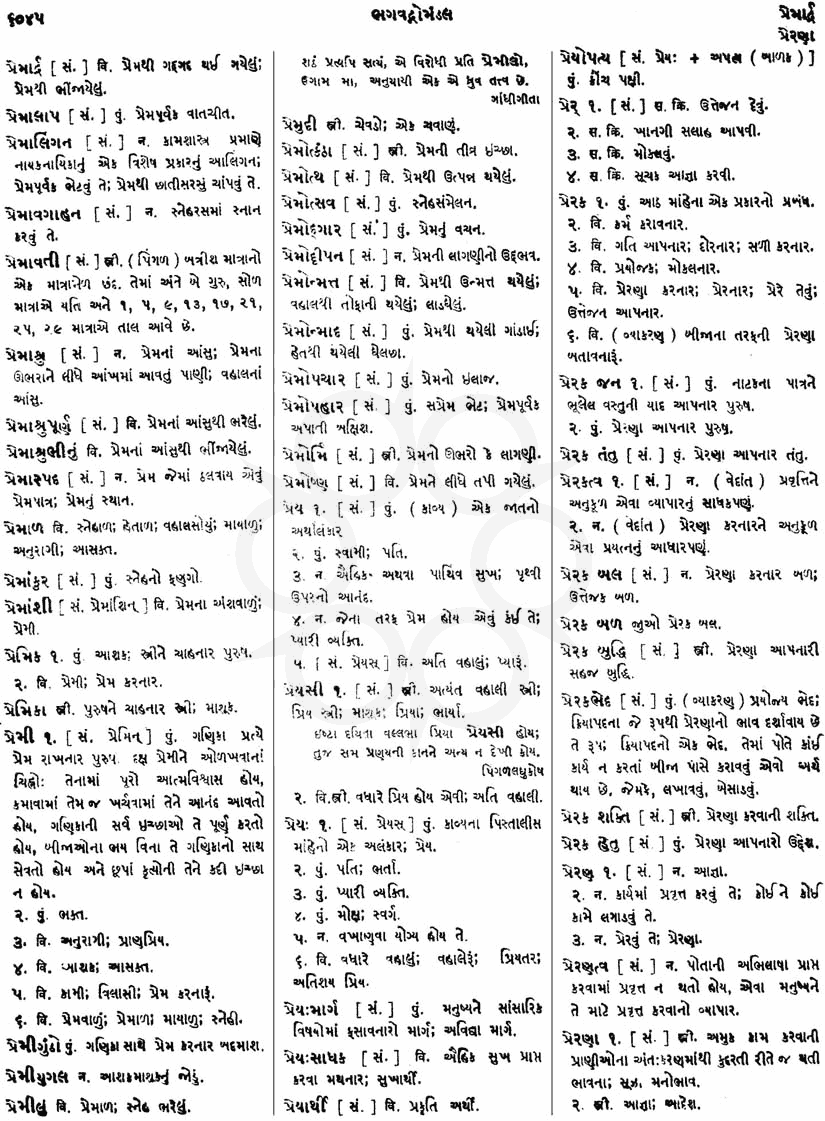 ૬૦૪૫
ભગવદ્ગોમંડલ
પ્રેમાર્દ્ર
પ્રેરણા
પ્રેમાર્દ્ર [ સં. ] વિ. પ્રેમથી ગદ્ગદ થઈ ગયેલું;
પ્રેમથી ભીંજાયેલું.
પ્રેમાલાપ [ સં. ] પું. પ્રેમપૂર્વક વાતચીત.
પ્રેમાલિંગન [ સં. ] ન. કામશાસ્ત્ર પ્રમાણે
નાયકનાયિકાનું એક વિશેષ પ્રકારનું આલિંગન;
પ્રેમપૂર્વક ભેટવું તે; પ્રેમથી છાતીસરસું ચાંપવું તે.
પ્રેમાવગાહન [ સં. ] ન. સ્નેહરસમાં સ્નાન
કરવું તે.
પ્રેમાવતી [ સં. ] સ્ત્રી. ( પિંગળ ) બત્રીશ માત્રાનો
એક માત્રામેળ છંદ. તેમાં અંતે બે ગુરુ, સોળ
માત્રાએ યતિ અને ૧, ૫, ૯, ૧૩, ૧૭, ૨૧,
૨૫, ૨૯ માત્રાએ તાલ આવે છે.
પ્રેમાશ્રુ [ સં. ] ન. પ્રેમનાં આંસુ; પ્રેમના
ઊભરાને લીધે આંખમાં આવતું પાણી; વહાલનાં
આંસુ.
પ્રેમાશ્રુપૂર્ણ [ સં. ] વિ. પ્રેમનાં આંસુથી ભરેલું.
પ્રેમાશ્રુભીનું વિ. પ્રેમનાં આંસુથી ભીંજાયેલું.
પ્રેમાસ્પદ [ સં. ] ન. પ્રેમ જેમાં ઠલવાય એવું
પ્રેમપાત્ર; પ્રેમનું સ્થાન.
પ્રેમાળ વિ. સ્નેહાળ; હેતાળ; વહાલસોયું; માયાળુ;
અનુરાગી; આસક્ત.
પ્રેમાંકુર [ સં. ] પું. સ્નેહનો ફણગો.
પ્રેમાંશી [ સં. પ્રેમાંશિન્ ] વિ. પ્રેમના અંશવાળું;
પ્રેમી.
પ્રેમિક ૧. પું. આશક; સ્ત્રીને ચાહનાર પુરુષ.
૨. વિ. પ્રેમી; પ્રેમ કરનાર.
પ્રેમિકા સ્ત્રી. પુરુષને ચાહનાર સ્ત્રી; માશૂક.
પ્રેમી ૧. [ સં. પ્રેમિન્ ] પું. ગણિકા પ્રત્યે
પ્રેમ રાખનાર પુરુષ. દક્ષ પ્રેમીને ઓળખવાનાં
ચિહ્નો: તેનામાં પૂરો આત્મવિશ્વાસ હોય,
કમાવામાં તેમ જ ખર્ચવામાં તેને આનંદ આવતો
હોય, ગણિકાની સર્વ ઇચ્છાઓ તે પૂર્ણ કરતો
હોય, બીજાઓના ભય વિના તે ગણિકાનો સાથ
સેવતો હોય અને છૂપાં કૃત્યોની તેને કદી ઇચ્છા
ન હોય.
૨. પું. ભક્ત.
૩. વિ. અનુરાગી; પ્રાણપ્રિય.
૪. વિ. આશક; આસક્ત.
૫. વિ. કામી; વિલાસી; પ્રેમ કરનારૂં.
૬. વિ. પ્રેમવાળું; પ્રેમાળ; માયાળુ; સ્નેહી.
પ્રેમીગુંડો પું. ગણિકા સાથે પ્રેમ કરનાર બદમાશ.
પ્રેમીયુગલ ન. આશકમાશૂકનું જોડું.
પ્રેમીલું વિ. પ્રેમાળ; સ્નેહ ભરેલું.
શઠં પ્રત્યપિ સત્યં, એ વિરોધી પ્રતિ પ્રેમીલો,
ઉગામ મા, અનુયાયી એક એ ધ્રુવ તત્ત્વ છે.
ગાંધીગીતા
પ્રેમુદી સ્ત્રી. ચેવડો; એક ચવાણું.
પ્રેમોત્કંઠા [ સં. ] સ્ત્રી. પ્રેમની તીવ્ર ઇચ્છા.
પ્રેમોત્થ [ સં. ] વિ. પ્રેમથી ઉત્પન્ન થયેલું.
પ્રેમોત્સવ [ સં. ] પું. સ્નેહસંમેલન.
પ્રેમોદ્ગાર [ સં. ] પું. પ્રેમનું વચન.
પ્રેમોદ્દીપન [ સં. ] ન. પ્રેમની લાગણીનો ઉદ્ભવ.
પ્રેમોન્મત્ત [ સં. ] વિ. પ્રેમથી ઉન્મત્ત થયેલું;
વહાલથી તોફાની થયેલું; લાડઘેલું.
પ્રેમોન્માદ [ સં. ] પું. પ્રેમથી થયેલી ગાંડાઈ;
હેતથી થયેલી ઘેલછા.
પ્રેમોપચાર [ સં. ] પું. પ્રેમનો ઇલાજ.
પ્રેમોપહાર [ સં. ] પું. સપ્રેમ ભેટ; પ્રેમપૂર્વક
અપાતી બક્ષિશ.
પ્રેમોર્મિ [ સં. ] સ્ત્રી. પ્રેમનો ઊભરો કે લાગણી.
પ્રેમોષ્ણ [ સં. ] વિ. પ્રેમને લીધે તપી ગયેલું.
પ્રેય ૧. [ સં. ] પું. ( કાવ્ય ) એક જાતનો
અર્થાલંકાર
૨. પું. સ્વામી; પતિ.
૩. ન. ઐહિક અથવા પાર્થિવ સુખ; પૃથ્વી
ઉપરનો આનંદ.
૪. ન. જેના તરફ પ્રેમ હોય એવું કંઈ તે;
પ્યારી વ્યક્તિ.
૫. [ સં. પ્રેયસ્ ] વિ. અતિ વહાલું; પ્યારૂં.
પ્રેયસી ૧. [ સં. ] સ્ત્રી. અત્યંત વહાલી સ્ત્રી;
પ્રિય સ્ત્રી; માશૂક; પ્રિયા; ભાર્યા.
ઇષ્ટા દયિતા વલ્લભા પ્રિયા પ્રેયસી હોય;
તુજ સમ પ્રણયની કાનને અન્ય ન દેખી કોય.
પિંગળલઘુકોષ
૨. વિ.સ્ત્રી. વધારે પ્રિય હોય એવી; અતિ વહાલી.
પ્રેય: ૧. [ સં. પ્રેયસ્ ] પું. કાવ્યના પિસ્તાલીસ
માંહેનો એક અલંકાર; પ્રેય.
૨. પું. પતિ; ભર્તા.
૩. પું. પ્યારી વ્યક્તિ.
૪. પું. મોક્ષ; સ્વર્ગ.
૫. ન. વખાણવા યોગ્ય હોય તે.
૬. વિ. વધારે વહાલું; વહાલેરૂં; પ્રિયતર;
અતિશય પ્રિય.
પ્રેય:માર્ગ [ સં. ] પું. મનુષ્યને સાંસારિક
વિષયોમાં ફસાવનારો માર્ગ; અવિદ્યા માર્ગ.
પ્રેય:સાધક [ સં. ] વિ. ઐહિક સુખ પ્રાપ્ત
કરવા મથનાર; સુખાર્થી.
પ્રેયાર્થી [ સં. ] વિ. પ્રકૃતિ અર્થી.
પ્રેયોપત્ય [ સં. પ્રેય: + અપત્ય ( બાળક ) ]
પું. ક્રૌંચ પક્ષી.
પ્રેર્ ૧. [ સં. ] સ. ક્રિ. ઉત્તેજન દેવું.
૨. સ. ક્રિ. ખાનગી સલાહ આપવી.
૩. સ. ક્રિ. મોકલવું.
૪. સ. ક્રિ. સૂચક આજ્ઞા કરવી.
પ્રેરક ૧. પું. આઠ માંહેના એક પ્રકારનો પ્રબંધ.
૨. વિ. કર્મ કરાવનાર.
૩. વિ. ગતિ આપનાર; દોરનાર; સળી કરનાર.
૪. વિ. પ્રયોજક; મોકલનાર.
૫. વિ. પ્રેરણા કરનાર; પ્રેરનાર; પ્રેરે તેવું;
ઉત્તેજન આપનાર.
૬. વિ. ( વ્યાકરણ ) બીજાના તરફની પ્રેરણા
બતાવનારૂં.
પ્રેરક જન ૧. [ સં. ] પું. નાટકના પાત્રને
ભૂલેલ વસ્તુની યાદ આપનાર પુરુષ.
૨. પું. પ્રેરણા આપનાર પુરુષ.
પ્રેરક તંતુ [ સં. ] પું. પ્રેરણા આપનાર તંતુ.
પ્રેરકત્વ ૧. [ સં. ] ન. ( વેદાંત ) પ્રવૃત્તિને
અનુકૂળ એવા વ્યાપારનું સાધકપણું.
૨. ન. ( વેદાંત ) પ્રેરણા કરનારને અનુકૂળ
એવા પ્રયત્નનું આધારપણું.
પ્રેરક બલ [ સં. ] ન. પ્રેરણા કરનાર બળ;
ઉત્તેજક બળ.
પ્રેરક બળ જુઓ પ્રેરક બલ.
પ્રેરક બુદ્ધિ [ સં. ] સ્ત્રી. પ્રેરણા આપનારી
સહજ બુદ્ધિ.
પ્રેરકભેદ [ સં. ] પું. ( વ્યાકરણ ) પ્રયોજ્ય ભેદ;
ક્રિયાપદના જે રૂપથી પ્રેરણાનો ભાવ દર્શાવાય છે
તે રૂપ; ક્રિયાપદનો એક ભેદ. તેમાં પોતે કાંઈ
કાર્ય ન કરતાં બીજા પાસે કરાવવું એવો અર્થ
થાય છે. જેમકે, લખાવવું, બેસાડવું.
પ્રેરક શક્તિ [ સં. ] સ્ત્રી. પ્રેરણા કરવાની શક્તિ.
પ્રેરક હેતુ [ સં. ] પું. પ્રેરણા આપનારો ઉદ્દેશ.
પ્રેરણ ૧. [ સં. ] ન. આજ્ઞા.
૨. ન. કાર્યમાં પ્રવૃત્ત કરવું તે; કોઈને કોઈ
કામે લગાડવું તે.
૩. ન. પ્રેરવું તે; પ્રેરણા.
પ્રેરણત્વ [ સં. ] ન. પોતાની અભિલાષા પ્રાપ્ત
કરવામાં પ્રવૃત્ત ન થતો હોય, એવા મનુષ્યને
તે માટે પ્રવૃત્ત કરવાનો વ્યાપાર.
પ્રેરણા ૧. [ સં. ] સ્ત્રી. અમુક કામ કરવાની
પ્રાણીઓના અંત:કરણમાંથી કુદરતી રીતે જ થતી
ભાવના; સૂઝ; મનોભાવ.
૨. સ્ત્રી. આજ્ઞા; આદેશ.